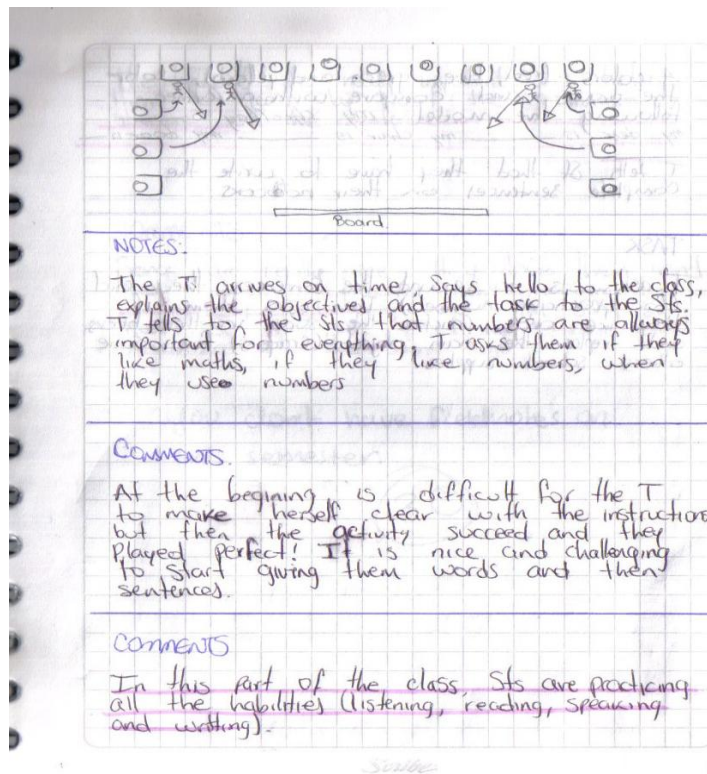 Board
NOTES:
The T. arrives on time, says hello to the class,
explains the objectived and the task to the Sts.
T tells to the sts that numbers are allways
important for everything. T asks them if they
like maths, if they like numbers, when
they use numbers
COMMENTS.
At the begining is difficult for the T
to make herself clear with the instructions
but then the activity succeed and they
played perfect! It is nice and challenging
to start giving them words and then
sentences.
COMMENTS
In this part of the class, Sts are practicing
all the habilities (listening, reading, speaking
and writing).
Scribe